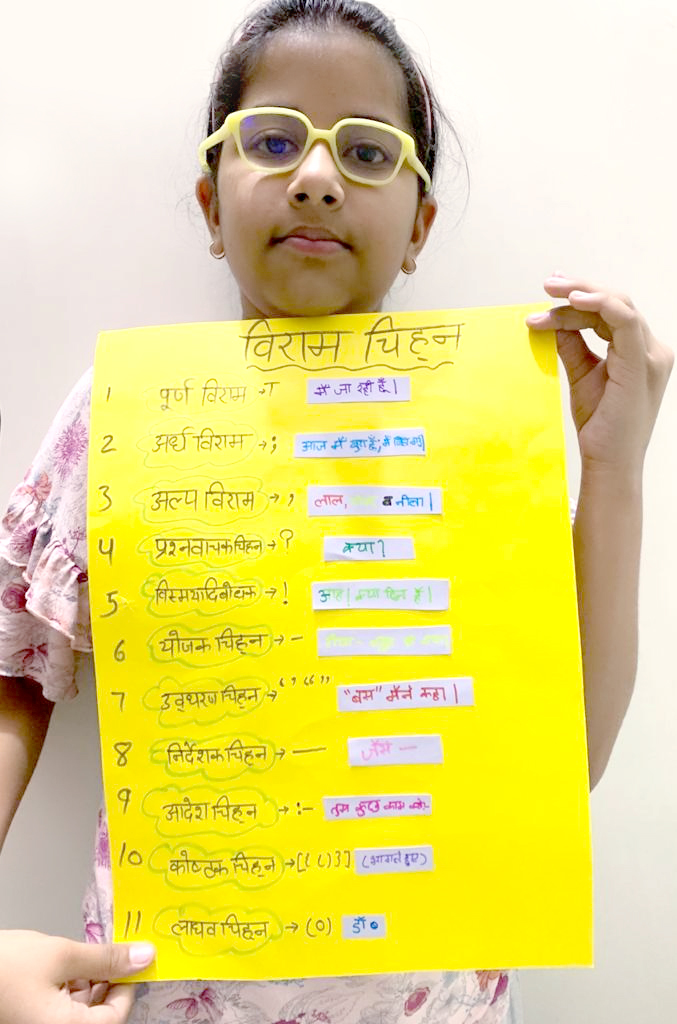 विराम चिह्न
1 पूर्ण विराम → । मैं जा रही हूँ।
2 अर्ध विराम → ; आज मैं खुश हूँ; मैं
3 अल्प विराम → , लाल, व नीला।
4 प्रश्नवाचक चिह्न → ? क्या?
5 विस्मयादिबोधक → ! आह! क्या दिन है।
6 योजक चिह्न → -
7 उद्धरण चिह्न → ‘ ’ “ ” “बस” मैंने कहा।
8 निर्देशक चिह्न → — जैसे —
9 आदेश चिह्न → :- तुम कुछ काम करो:-
10 कोष्ठक चिह्न → [{( )}] (भागते हुए)
11 लाघव चिह्न → (०) डॉ०